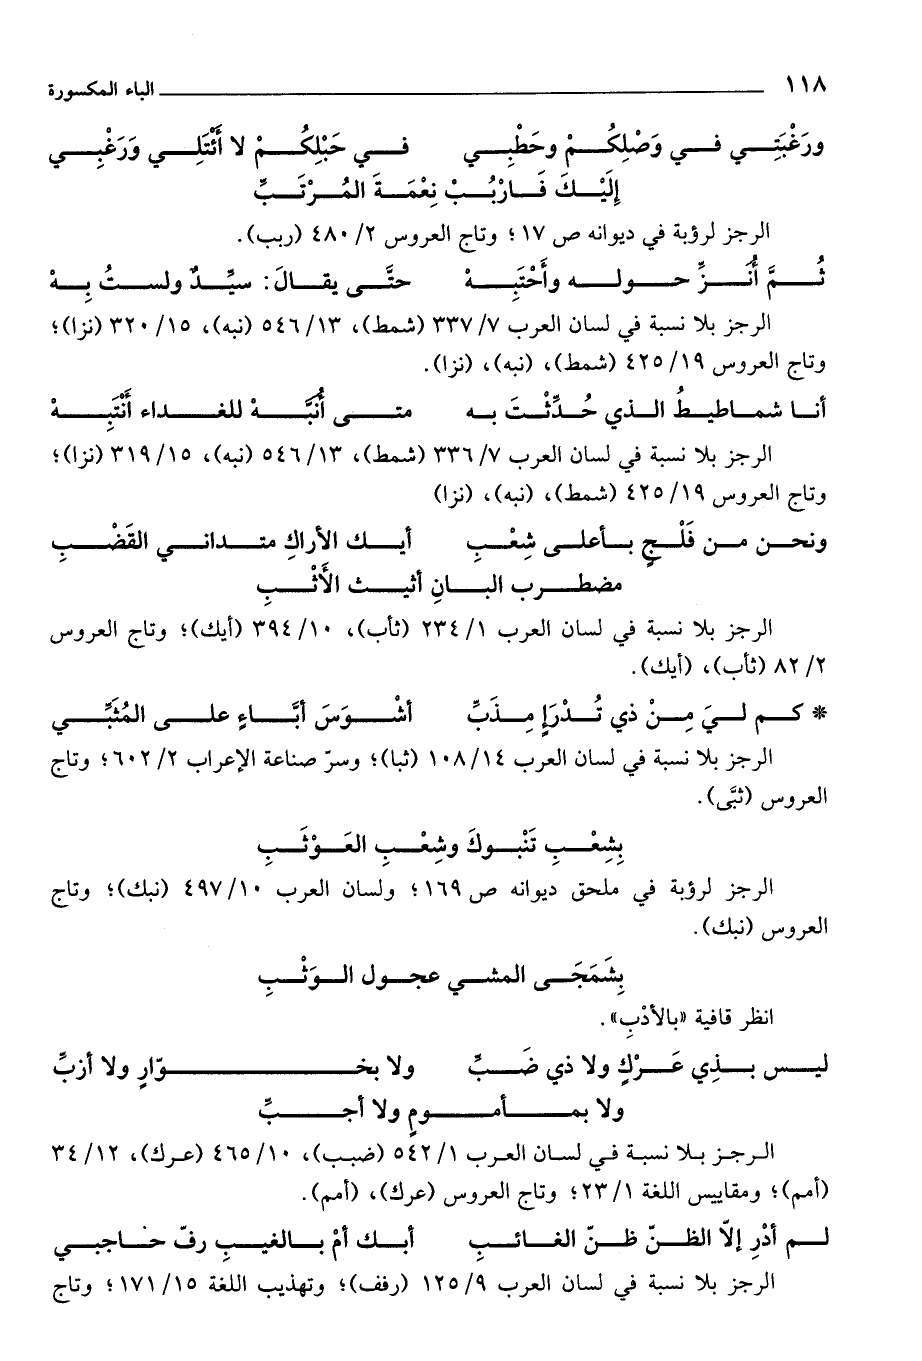 ١١٨ الباء المكسورة
ورَغْبَتِي في وَصْلِكُمْ وحَطْبِي في حَبْلِكُمْ لا أَتْتَلِي ورَغْبِي
إِلَيْكَ فَارْبُبْ نِعْمَةَ المُرْتَبِّ
الرجز لرؤبة في ديوانه ص ١٧؛ وتاج العروس ٢/ ٤٨٠ (ربب).
ثُمَّ أُنَزِّ حوله وأَحْتَبِهْ حتَّى يقالَ: سيِّدٌ ولستُ بِهْ
الرجز بلا نسبة في لسان العرب ٧/ ٣٣٧ (شمط)، ١٣/ ٥٤٦ (نبه)، ١٥/ ٣٢٠ (نزا)؛
وتاج العروس ١٩/ ٤٢٥ (شمط)، (نبه)، (نزا).
أنا شماطيطُ الذي حُدِّثْتَ به متى أُنَبَّهْ للغداء أَنْتَبِهْ
الرجز بلا نسبة في لسان العرب ٧/ ٣٣٦ (شمط)، ١٣/ ٥٤٦ (نبه)، ١٥/ ٣١٩ (نزا)؛
وتاج العروس ١٩/ ٤٢٥ (شمط)، (نبه)، (نزا)
ونحن من فَلْجٍ بأعلى شِعْبِ أيك الأراكِ متداني القَضْبِ
مضطرب البانِ أثيث الأَثْبِ
الرجز بلا نسبة في لسان العرب ١/ ٢٣٤ (ثأب)، ١٠/ ٣٩٤ (أيك)؛ وتاج العروس
٢/ ٨٢ (ثأب)، (أيك).
* كم ليَ مِنْ ذي تُدْرَإٍ مِذَبِّ أشْوَسَ أبَّاءٍ على المُثَبِّي
الرجز بلا نسبة في لسان العرب ١٤/ ١٠٨ (ثبا)؛ وسرّ صناعة الإعراب ٢/ ٦٠٢؛ وتاج
العروس (ثبَّى).
بِشِعْبِ تَنْبوكَ وشِعْبِ العَوْثَبِ
الرجز لرؤبة في ملحق ديوانه ص ١٦٩؛ ولسان العرب ١٠/ ٤٩٧ (نبك)؛ وتاج
العروس (نبك).
بِشَمَجَى المشي عجول الوَثْبِ
انظر قافية «بالأدْبِ».
ليس بذِي عَرْكٍ ولا ذي ضَبِّ ولا بخوّارٍ ولا أزبِّ
ولا بمأمومٍ ولا أجبِّ
الرجز بلا نسبة في لسان العرب ١/ ٥٤٢ (ضبب)، ١٠/ ٤٦٥ (عرك)، ١٢/ ٣٤
(أمم)؛ ومقاييس اللغة ١/ ٢٣؛ وتاج العروس (عرك)، (أمم).
لم أدْرِ إلّا الظنّ ظنّ الغائبِ أبك أمْ بالغيبِ رفّ حاجبي
الرجز بلا نسبة في لسان العرب ٩/ ١٢٥ (رفف)؛ وتهذيب اللغة ١٥/ ١٧١؛ وتاج